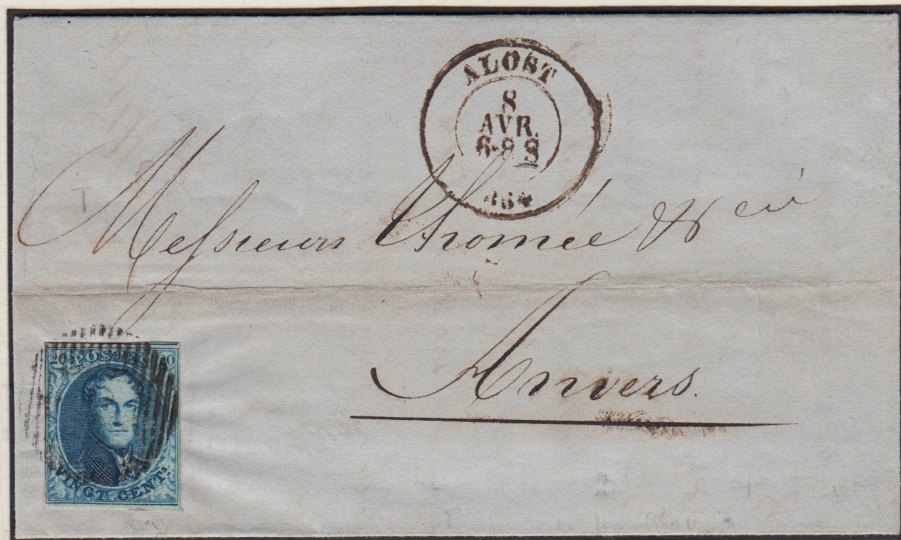 ALOST
8
AVR.
6-8 S
Messieurs Thomée & Cie
Anvers.
POSTES
VINGT CENTS.